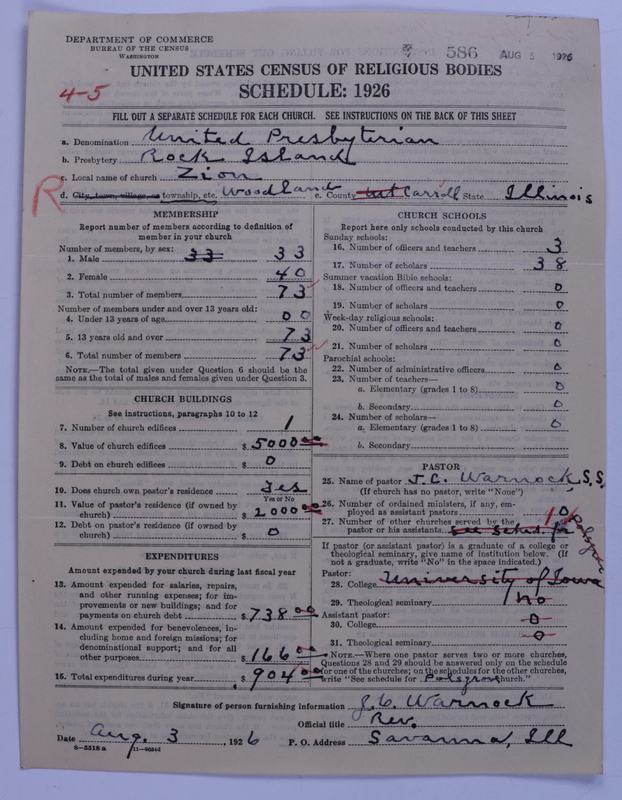 DEPARTMENT OF COMMERCE
BUREAU OF THE CENSUS
WASHINGTON
586 AUG 5 1926
UNITED STATES CENSUS OF RELIGIOUS BODIES
4-5
SCHEDULE: 1926
FILL OUT A SEPARATE SCHEDULE FOR EACH CHURCH. SEE INSTRUCTIONS ON THE BACK OF THIS SHEET
a. Denomination United Presbyterian
b. Presbytery Rock Island
c. Local name of church Zion
R
d. City, town, village, or township, etc. Woodland e. County Carroll State Illinois
MEMBERSHIP
Report number of members according to definition of
member in your church
Number of members, by sex:
1. Male 33 33
2. Female 40
3. Total number of members 73
Number of members under and over 13 years old:
4. Under 13 years of age 00
5. 13 years old and over 73
6. Total number of members 73
NOTE.—The total given under Question 6 should be the
same as the total of males and females given under Question 3.
CHURCH BUILDINGS
See instructions, paragraphs 10 to 12
7. Number of church edifices 1
8. Value of church edifices $ 5000 00
9. Debt on church edifices $ 0
10. Does church own pastor's residence Yes
Yes or No
11. Value of pastor's residence (if owned by
church) $ 2000 00
12. Debt on pastor's residence (if owned by
church) $ 0
EXPENDITURES
Amount expended by your church during last fiscal year
13. Amount expended for salaries, repairs,
and other running expenses; for im-
provements or new buildings; and for
payments on church debt $ 738 00
14. Amount expended for benevolences, in-
cluding home and foreign missions; for
denominational support; and for all
other purposes $ 166 00
15. Total expenditures during year $ 904 00
CHURCH SCHOOLS
Report here only schools conducted by this church
Sunday schools:
16. Number of officers and teachers 3
17. Number of scholars 38
Summer vacation Bible schools:
18. Number of officers and teachers 0
19. Number of scholars 0
Week-day religious schools:
20. Number of officers and teachers 0
21. Number of scholars 0
Parochial schools:
22. Number of administrative officers 0
23. Number of teachers—
a. Elementary (grades 1 to 8) 0
b. Secondary 0
24. Number of scholars—
a. Elementary (grades 1 to 8) 0
b. Secondary
PASTOR
25. Name of pastor J. C. Warnock, S, S,
(If church has no pastor, write "None")
26. Number of ordained ministers, if any, em-
ployed as assistant pastors 0
27. Number of other churches served by the
pastor or his assistants See Sched. for 1 Palsgrove
If pastor (or assistant pastor) is a graduate of a college or
theological seminary, give name of institution below. (If
not a graduate, write "No" in the space indicated.)
Pastor:
28. College University of Iowa
29. Theological seminary No
Assistant pastor:
30. College 0
31. Theological seminary 0
NOTE.—Where one pastor serves two or more churches,
Questions 28 and 29 should be answered only on the schedule
for one of the churches; on the schedules for the other churches,
write "See schedule for Palsgrove church."
Signature of person furnishing information J. C. Warnock
Official title Rev.
Date Aug. 3, 1926 P. O. Address Savanna, Ill
8—5518a 11—9084d